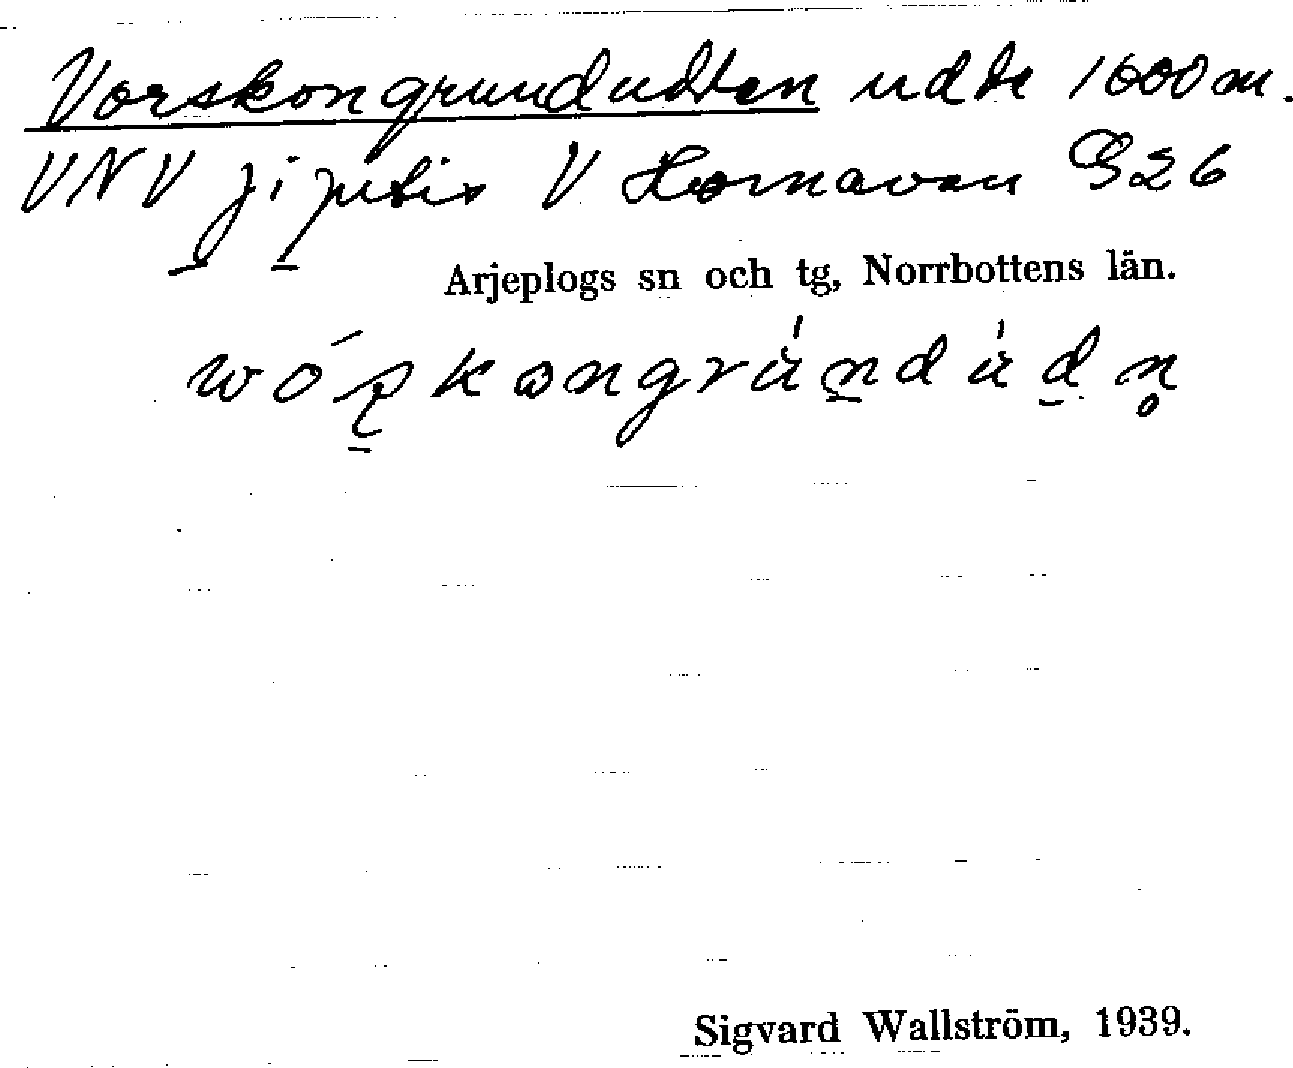 Vorskongrundudden udde 1600 m.
VNV jijutis V Hornavan G26
Arjeplogs sn och tg, Norrbottens län.
Sigvard Wallström, 1939.